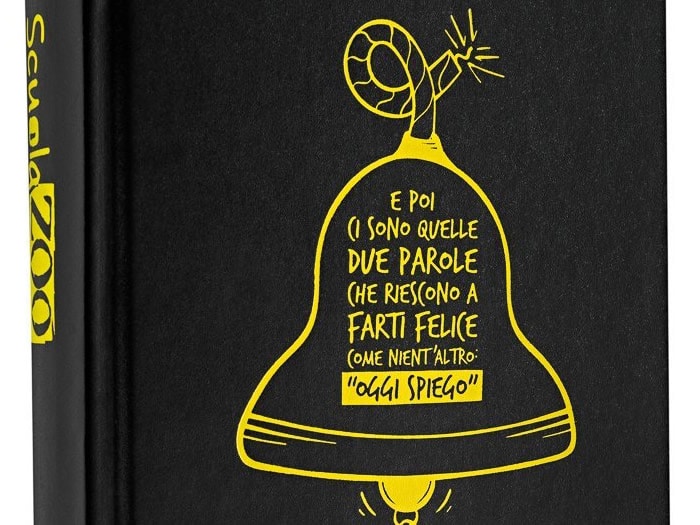 ScuolaZOO
E POI
CI SONO QUELLE
DUE PAROLE
CHE RIESCONO A
FARTI FELICE
COME NIENT'ALTRO:
"OGGI SPIEGO"